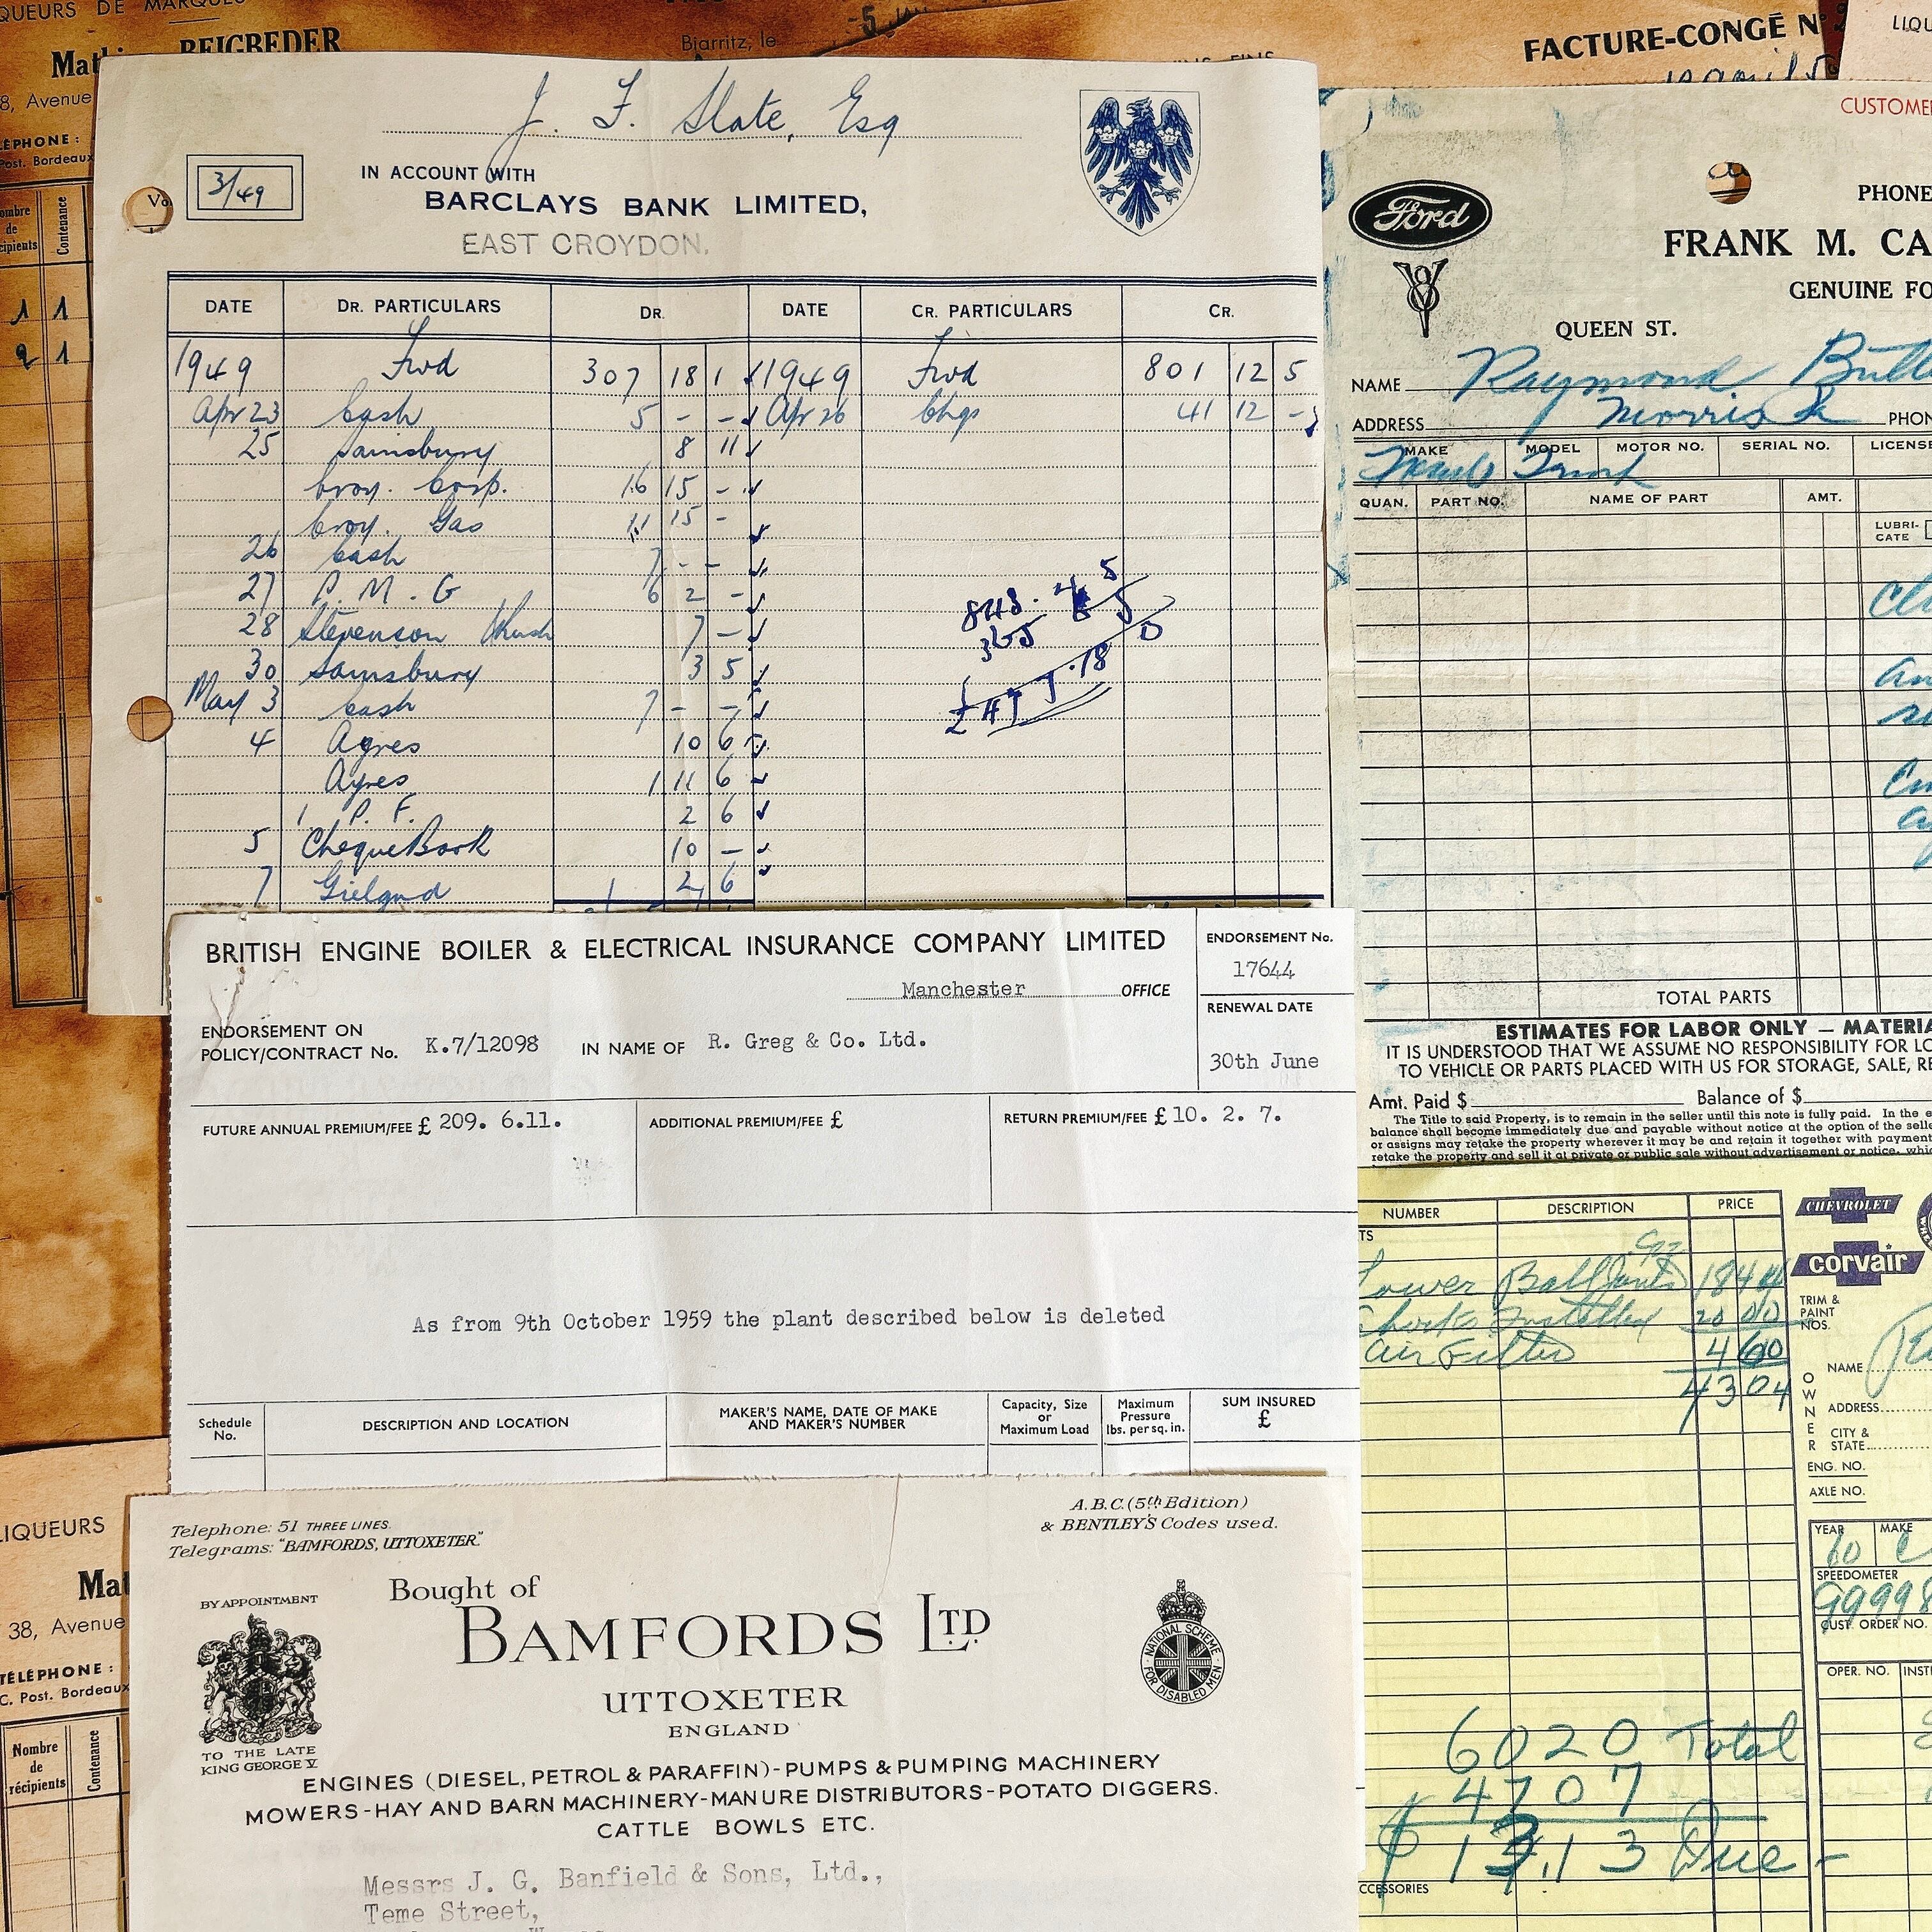 QUEURS DE MARQUES
BEIGBEDER
8, Avenue
Biarritz, le
-5
FACTURE-CONGÉ N°
LÉPHONE :
Post. Bordeaux
Nombre de récipients
Contenance
1 1
2 1
J. F. Slate, Esq
3/49
IN ACCOUNT WITH
BARCLAYS BANK LIMITED,
EAST CROYDON.
DATE DR. PARTICULARS DR. DATE CR. PARTICULARS CR.
1949 Fwd 307 18 1 1949 Fwd 801 12 5
Apr 23 Cash 5 - - Apr 26 Chqs 41 12 -
25 Sainsbury 8 11
Croy. Corp. 16 15 -
Croy. Gas 11 15 -
26 Cash 7 - -
27 P. M. G 6 2 -
28 Stevenson & Rush 7 -
30 Sainsbury 3 5
May 3 Cash 7 - -
4 Ayres 10 6
Ayres 1 11 6
P. F. 2 6
5 Cheque Book 10 -
7 Gielgud 2 6
CUSTOMER
Ford
V8
PHONE
FRANK M. CA
GENUINE FO
QUEEN ST.
NAME Raymond
ADDRESS Morris PHON
MAKE MODEL MOTOR NO. SERIAL NO. LICENSE
QUAN. PART NO. NAME OF PART AMT.
LUBRI-
CATE
TOTAL PARTS
ESTIMATES FOR LABOR ONLY — MATERIA
IT IS UNDERSTOOD THAT WE ASSUME NO RESPONSIBILITY FOR LO
TO VEHICLE OR PARTS PLACED WITH US FOR STORAGE, SALE, RE
Amt. Paid $ Balance of $
The Title to said Property, is to remain in the seller until this note is fully paid. In the e
balance shall become immediately due and payable without notice at the option of the selle
or assigns may retake the property wherever it may be and retain it together with payment
retake the property and sell it at private or public sale without advertisement or notice, whic
BRITISH ENGINE BOILER & ELECTRICAL INSURANCE COMPANY LIMITED
ENDORSEMENT No.
17644
Manchester OFFICE
RENEWAL DATE
30th June
ENDORSEMENT ON
POLICY/CONTRACT No. K.7/12098 IN NAME OF R. Greg & Co. Ltd.
FUTURE ANNUAL PREMIUM/FEE £ 209. 6.11. ADDITIONAL PREMIUM/FEE £ RETURN PREMIUM/FEE £ 10. 2. 7.
As from 9th October 1959 the plant described below is deleted
Schedule No. DESCRIPTION AND LOCATION MAKER'S NAME, DATE OF MAKE AND MAKER'S NUMBER Capacity, Size or Maximum Load Maximum Pressure lbs. per sq. in. SUM INSURED £
NUMBER DESCRIPTION PRICE
TS
Lower Ball Joints 18 44
Shocks Installed 20 00
Air Filter 4 60
43 04
CHEVROLET
corvair
TRIM &
PAINT
NOS.
OWNER
NAME
ADDRESS
CITY &
STATE
ENG. NO.
AXLE NO.
YEAR MAKE
60 C
SPEEDOMETER
99998
CUST. ORDER NO.
OPER. NO. INST
6020 Total
4707
$ 13.13 Due
CCESSORIES
LIQUEURS
Mat
38, Avenue
TÉLÉPHONE :
C. Post. Bordeaux
Nombre de récipients
Contenance
Telephone: 51 THREE LINES.
Telegrams: "BAMFORDS, UTTOXETER."
A.B.C. (5th Edition)
& BENTLEY'S Codes used.
BY APPOINTMENT
TO THE LATE
KING GEORGE V.
Bought of
BAMFORDS LTD
UTTOXETER
ENGLAND
NATIONAL SCHEME
FOR DISABLED MEN
ENGINES (DIESEL, PETROL & PARAFFIN)-PUMPS & PUMPING MACHINERY
MOWERS-HAY AND BARN MACHINERY-MANURE DISTRIBUTORS-POTATO DIGGERS.
CATTLE BOWLS ETC.
Messrs J. G. Banfield & Sons, Ltd.,
Teme Street,